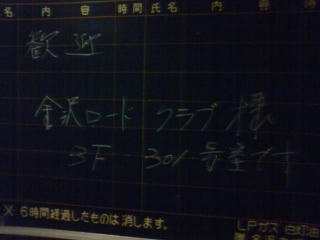 名 内 容 時間 氏名 内 容
歓迎
金沢ロード クラブ様
3F 301号室です
※ 6時間経過したものは消します。
LPガス 白灯油